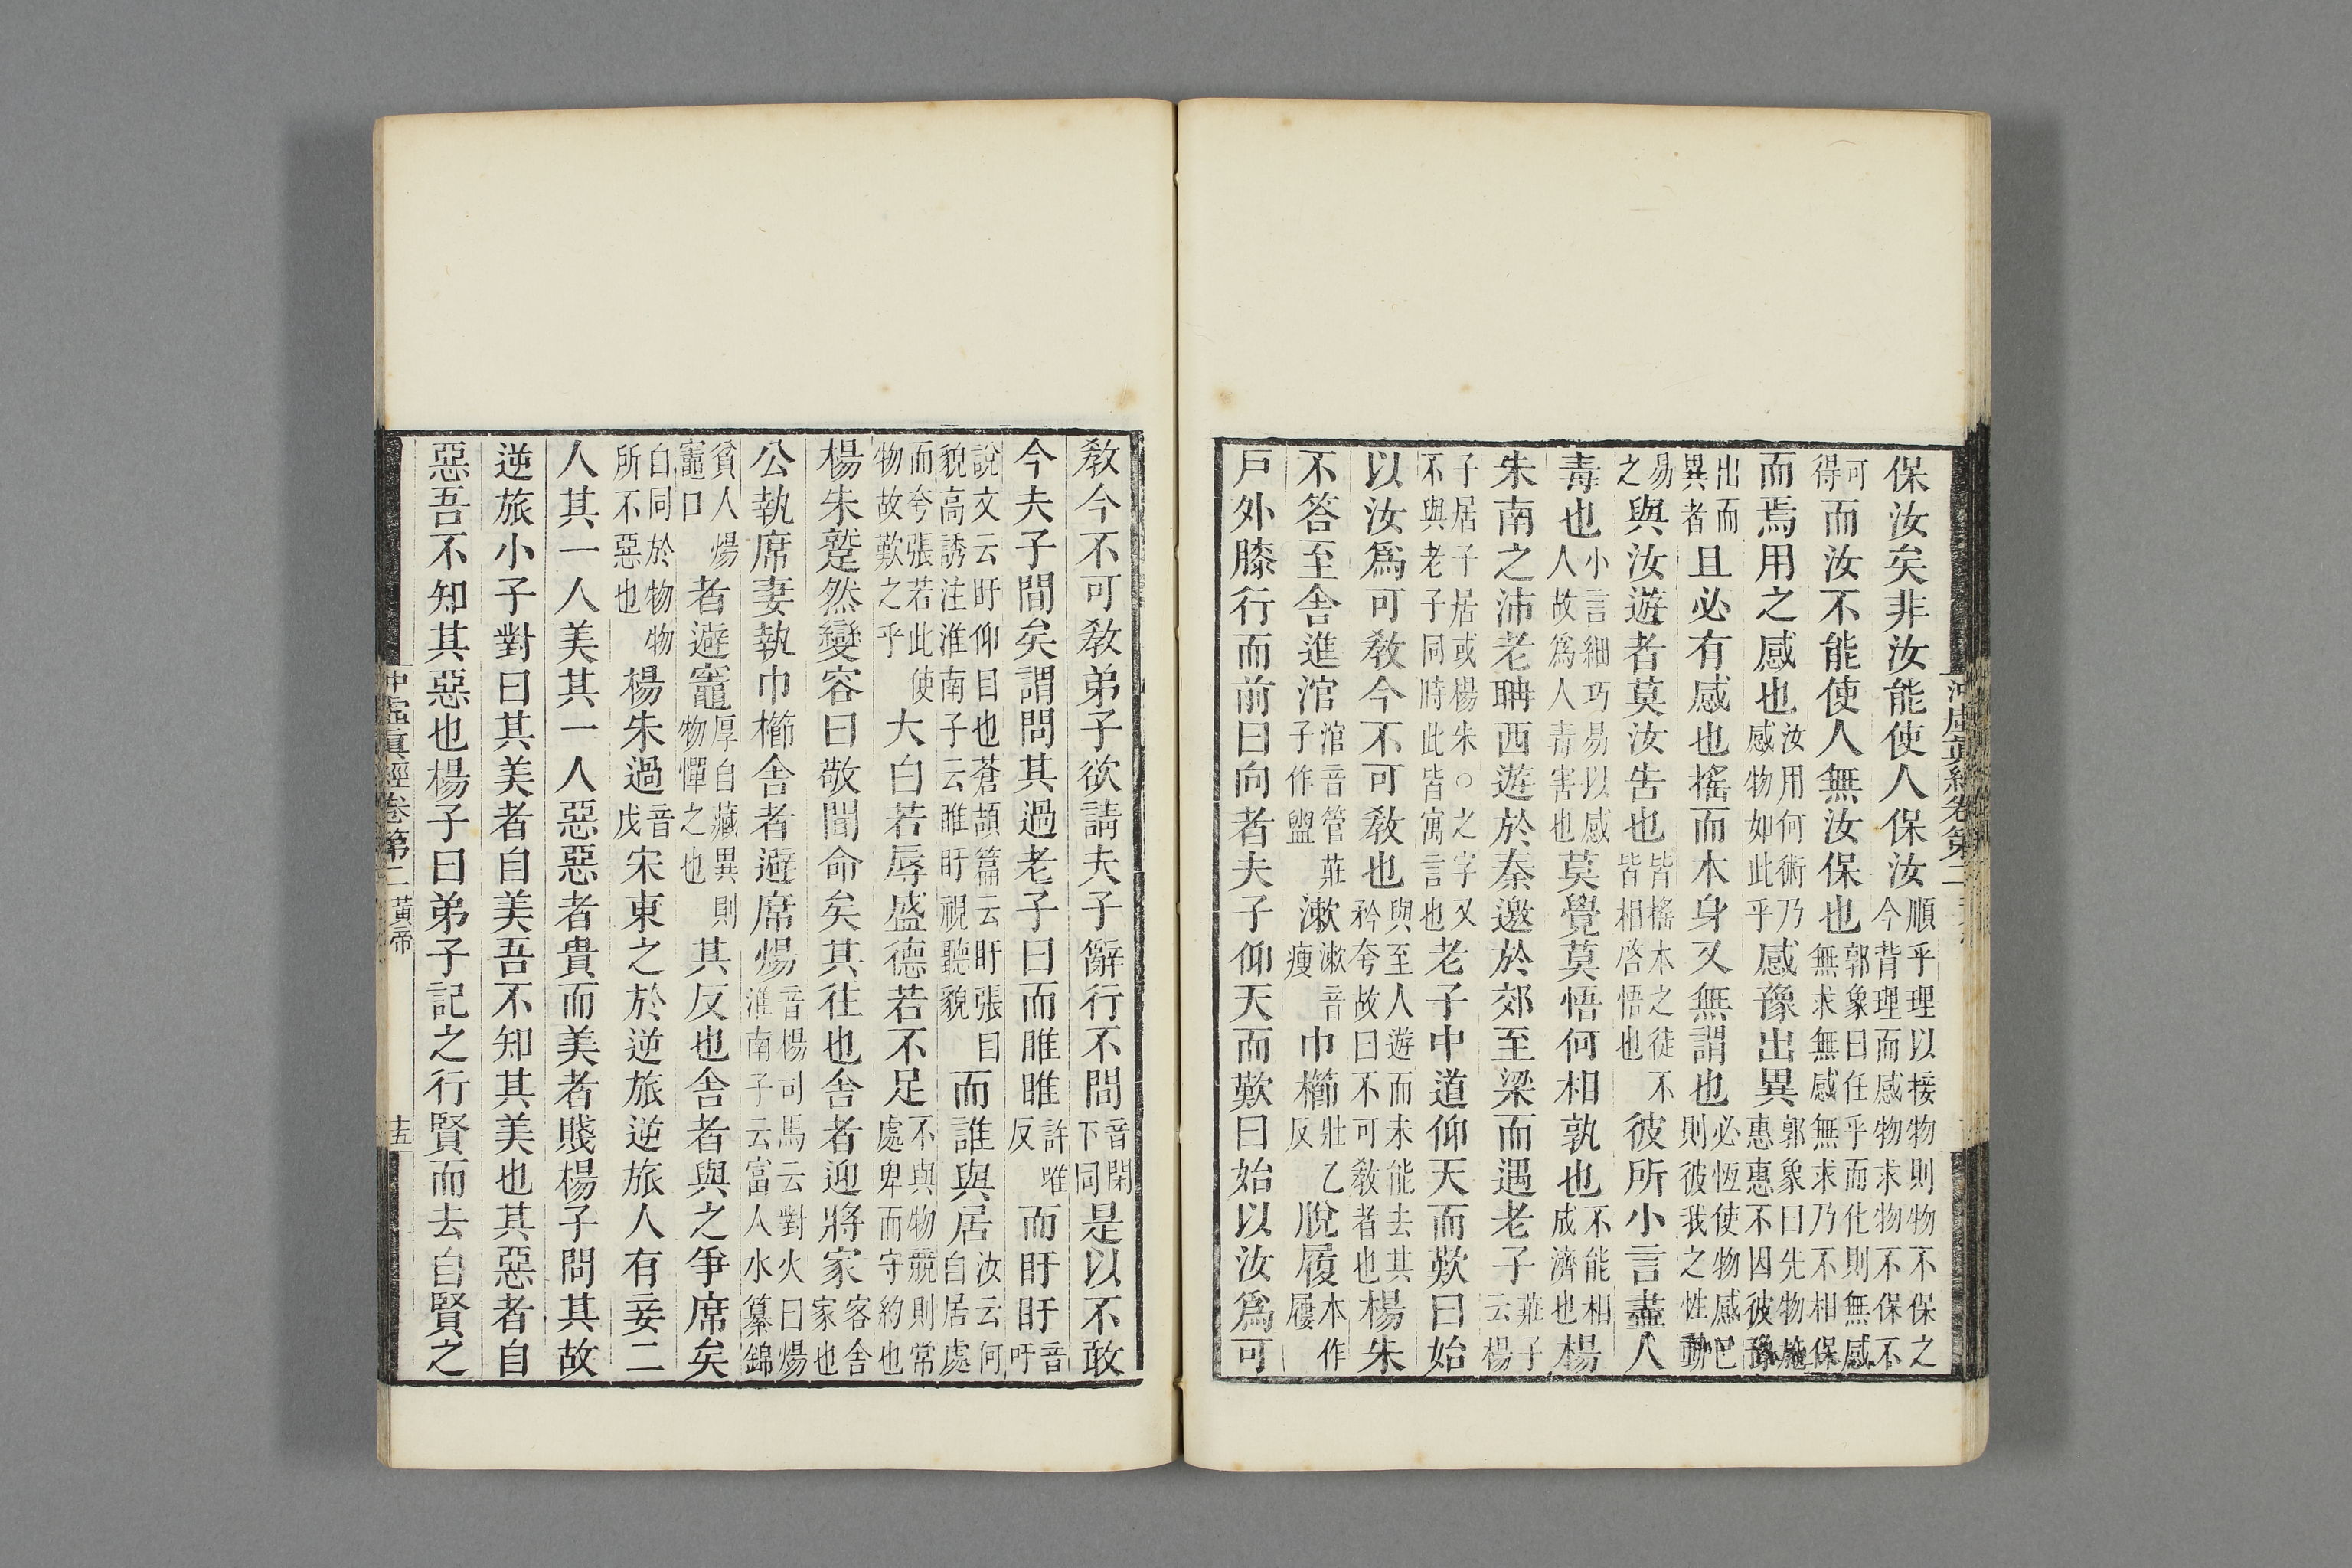 沖虛眞經卷第二
保汝矣非汝能使人保汝順乎理以接物則物不保之今背理而感物求物不保不
可得而汝不能使人無汝保也郭象曰任乎而化則無感無求無感無求乃不相保
而焉用之感也汝用何術乃感物如此乎感豫出異郭象曰先物施惠惠不因彼豫
出而異者且必有感也搖而本身又無謂也必恆使物感己則彼我之性動
易之與汝遊者莫汝告也皆搖本之徒不皆相啓悟也彼所小言盡人
毒也小言細巧易以感人故爲人毒害也莫覺莫悟何相孰也不能相成濟也楊
朱南之沛老聃西遊於秦邀於郊至梁而遇老子莊子云楊
子居子居或楊朱○之字又不與老子同時此皆寓言也老子中道仰天而歎曰始
以汝爲可敎今不可敎也與至人遊而未能去其矜夸故曰不可敎者也楊朱
不答至舍進涫涫音管莊子作盥漱漱音瘦巾櫛壯乙反脫履本作屨
戶外膝行而前曰向者夫子仰天而歎曰始以汝爲可
敎今不可敎弟子欲請夫子辭行不閒音閑下同是以不敢
今夫子閒矣謂問其過老子曰而睢睢許唯反而盱盱音吁
說文云盱仰目也蒼頡篇云盱張目貌高誘注淮南子云睢盱視聽貌而誰與居汝云何自居處
而夸張若此使物故歎之乎大白若辱盛德若不足不與物競則常處卑而守約也
楊朱蹵然變容曰敬聞命矣其往也舍者迎將家客舍家也
公執席妻執巾櫛舍者避席煬音楊司馬云對火曰煬淮南子云富人水纂錦
貧人煬竈口者避竈厚自藏異則物憚之也其反也舍者與之爭席矣
自同於物物所不惡也楊朱過音戈宋東之於逆旅逆旅人有妾二
人其一人美其一人惡惡者貴而美者賤楊子問其故
逆旅小子對曰其美者自美吾不知其美也其惡者自
惡吾不知其惡也楊子曰弟子記之行賢而去自賢之
沖虛眞經卷第二 黃帝 十五